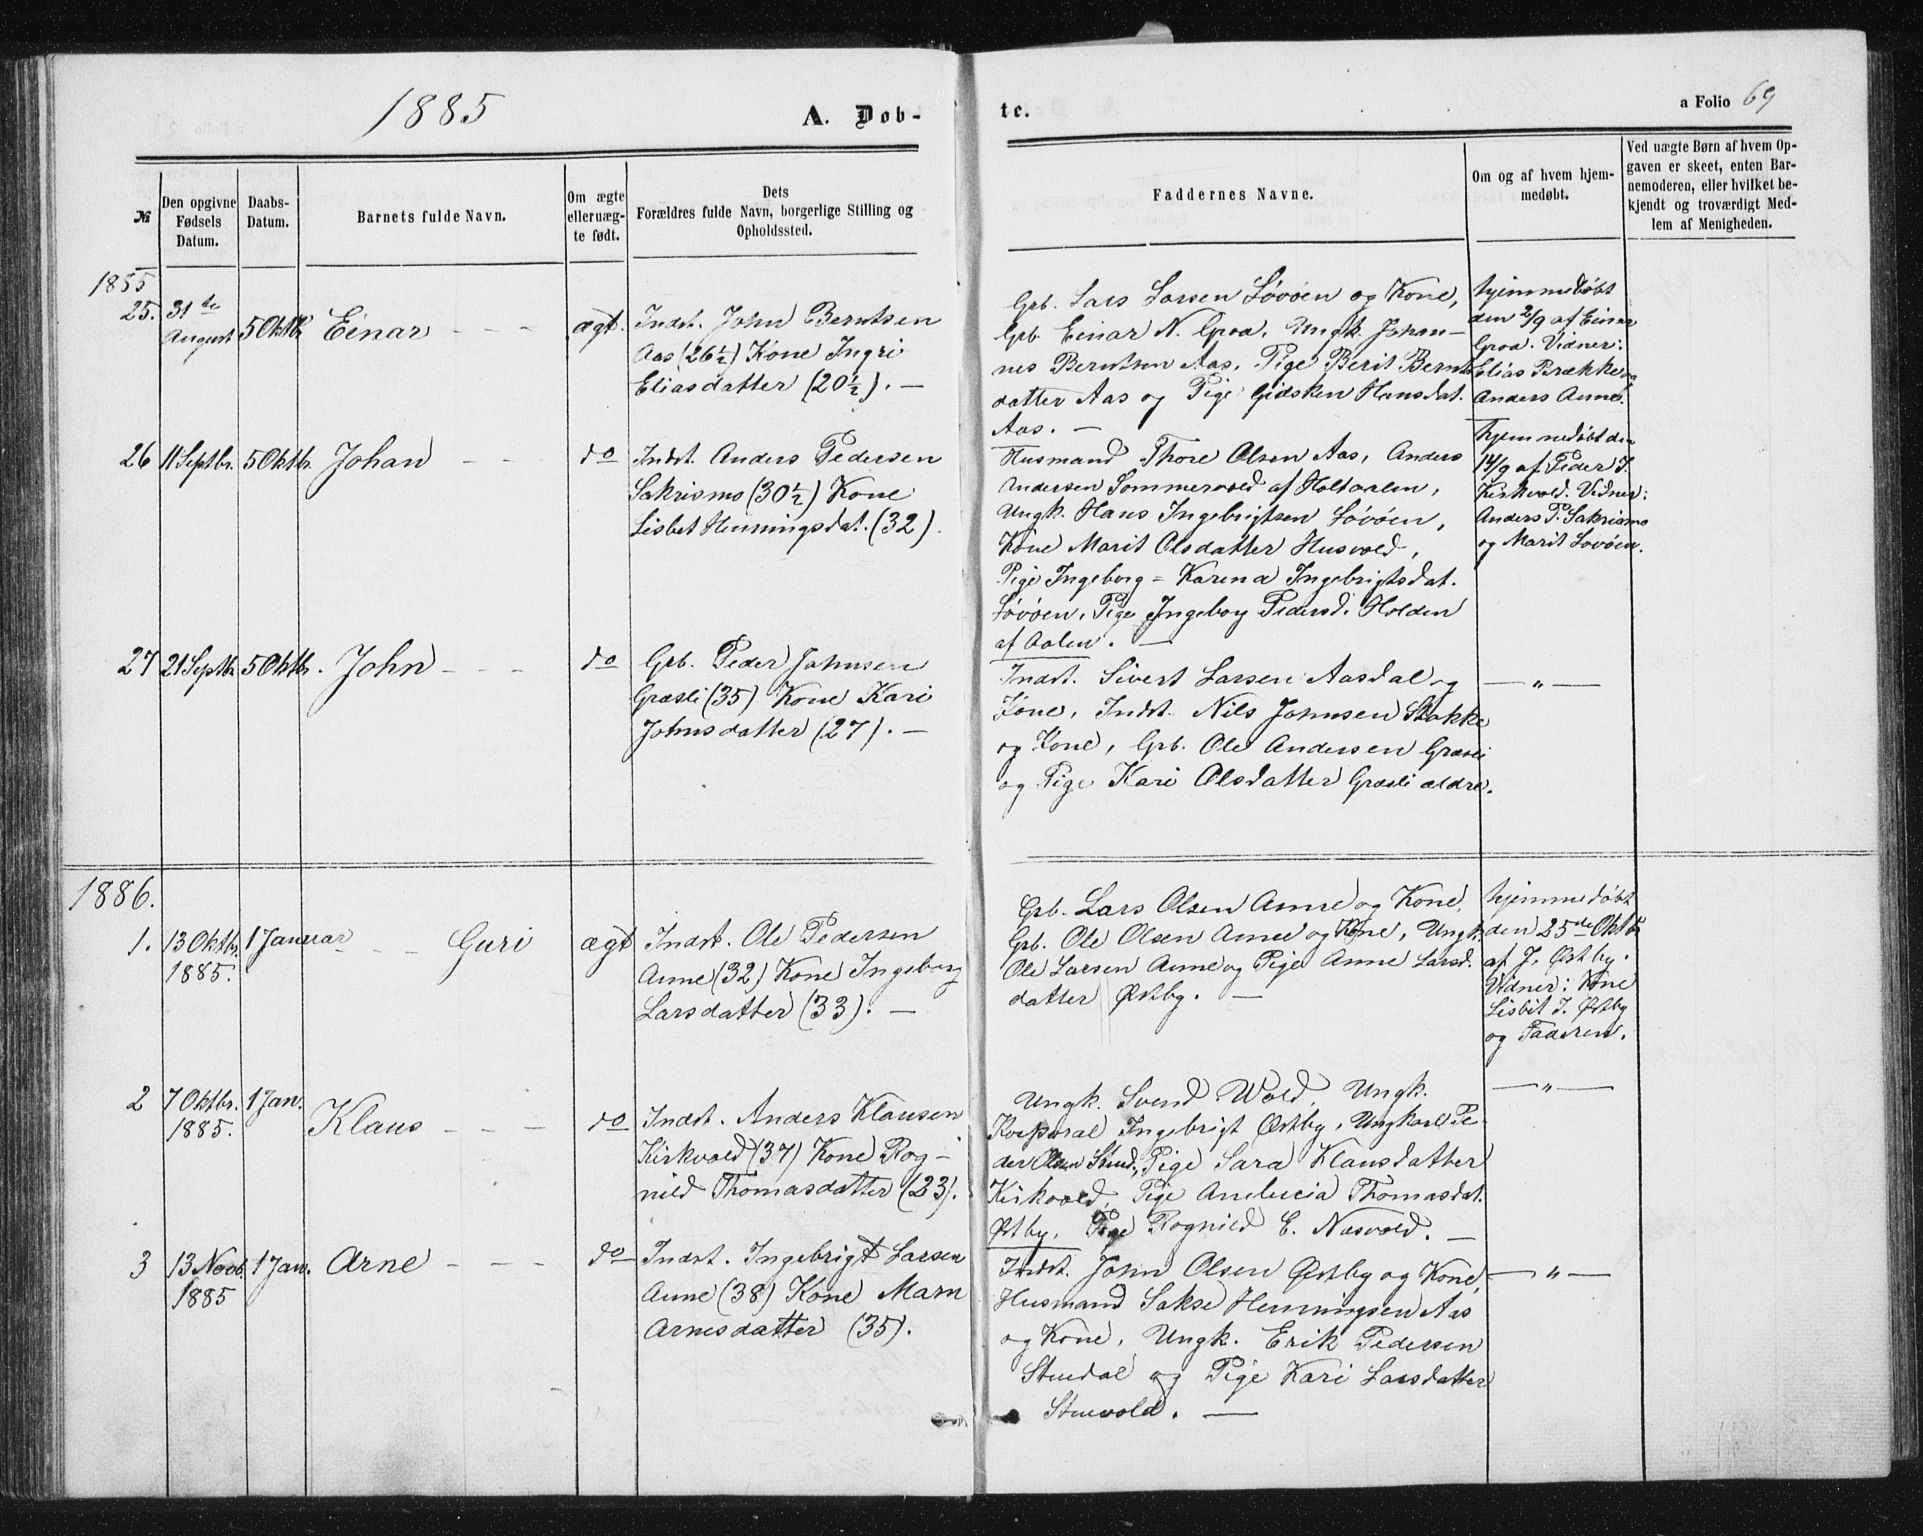 1885
A. Døb-
№
Den opgivne
Fødsels
Datum.
Daabs-
Datum.
Barnets fulde Navn.
Om ægte
eller uæg-
te født.
Dets
Forældres fulde Navn, borgerlige Stilling og
Opholdssted.
1855
25.
31te
August
5 Oktb.
Einar
ægt.
Indst. John Berntsen
Aas (26½) Kone Ingri
Eliasdatter (20½). —
26
11 Septbr.
5 Oktbr.
Johan
do
Indst. Anders Pedersen
Sakrismo (30½) Kone
Lisbet Henningsdat. (32).
27
21 Septbr.
5 Oktbr.
John
do
Grb. Peder Johnsen
Græsli (35) Kone Kari
Johnsdatter (27). —
1886.
1.
13 Oktbr.
1885.
1 Januar
Guri
ægt
Indst. Ole Pedersen
Aune (32) Kone Ingeborg
Larsdatter (33). —
2
7 Oktbr.
1885.
1 Jan.
Klaus
do
Indst. Anders Klausen
Kirkvold (37) Kone Rog-
nild Thomasdatter (23).
3
13 Novb.
1885
1 Jan.
Arne
do
Indst. Ingebrigt Larsen
Aune (38) Kone Marn
Arnesdatter (35).
te.
a Folio 69
Faddernes Navne.
Om og af hvem hjem-
medøbt.
Ved uægte Børn af hvem Op-
gaven er skeet, enten Bar-
nemoderen, eller hvilket be-
kjendt og troværdigt Med-
lem af Menigheden.
Grb. Lars Larsen Løvøen og Kone,
Grb. Einar N. Groa, Ungk. Johan-
nes Berntsen Aas, Pige Berit Bernts
datter Aas og Pige Gidsken Hansdat.
Aas. —
hjemmedøbt
den 2/9 af Einar
Groa. Vidner:
Elias Brække og
Anders Aune.
Husmand Thore Olsen Aas, Anders
Andersen Sommervold af Holtaalen,
Ungk. Hans Ingebrigtsen Løvøen,
Kone Marit Olsdatter Husvold,
Pige Ingeborg = Karena Ingebrigtsdat.
Løvøen, Pige Ingeborg Pedersd. Holden
af Aalen. —
hjemmedøbt den
14/9 af Peder J.
Kirkvold. Vidner:
Anders P. Sakrismo
og Marit Løvøen.
Indst. Sivert Larsen Aasdal og
Kone, Indst. Nils Johnsen Stokke
og Kone, Grb. Ole Andersen Græsli
og Pige Kari Olsdatter Græsli ældre.
— " —
Grb. Lars Olsen Aune og Kone,
Grb. Ole Olsen Aune og Kone, Ungk.
Ole Larsen Aune og Pige Anne Larsd.
datter Østby. —
hjemmedøbt
den 25de Oktb
af J. Østby.
Vidner: Kone
Lisbet J. Østby
og Faderen.
Ungk. Svend Wold, Ungk.
Korporal Ingebrigt Østby, Ungkarl Pe-
der Olsen Stued, Pige Sara Klausdatter
Kirkvold, Pige Anelucia Thomasdat.
Østby, Pige Rognild E. Næsvold. —
— " —
Indst. John Olsen Østby og Kone,
Husmand Sakse Henningsen Aas
og Kone, Ungk. Erik Pedersen
Stuedal og Pige Kari Larsdatter
Stuevold. —
— " —